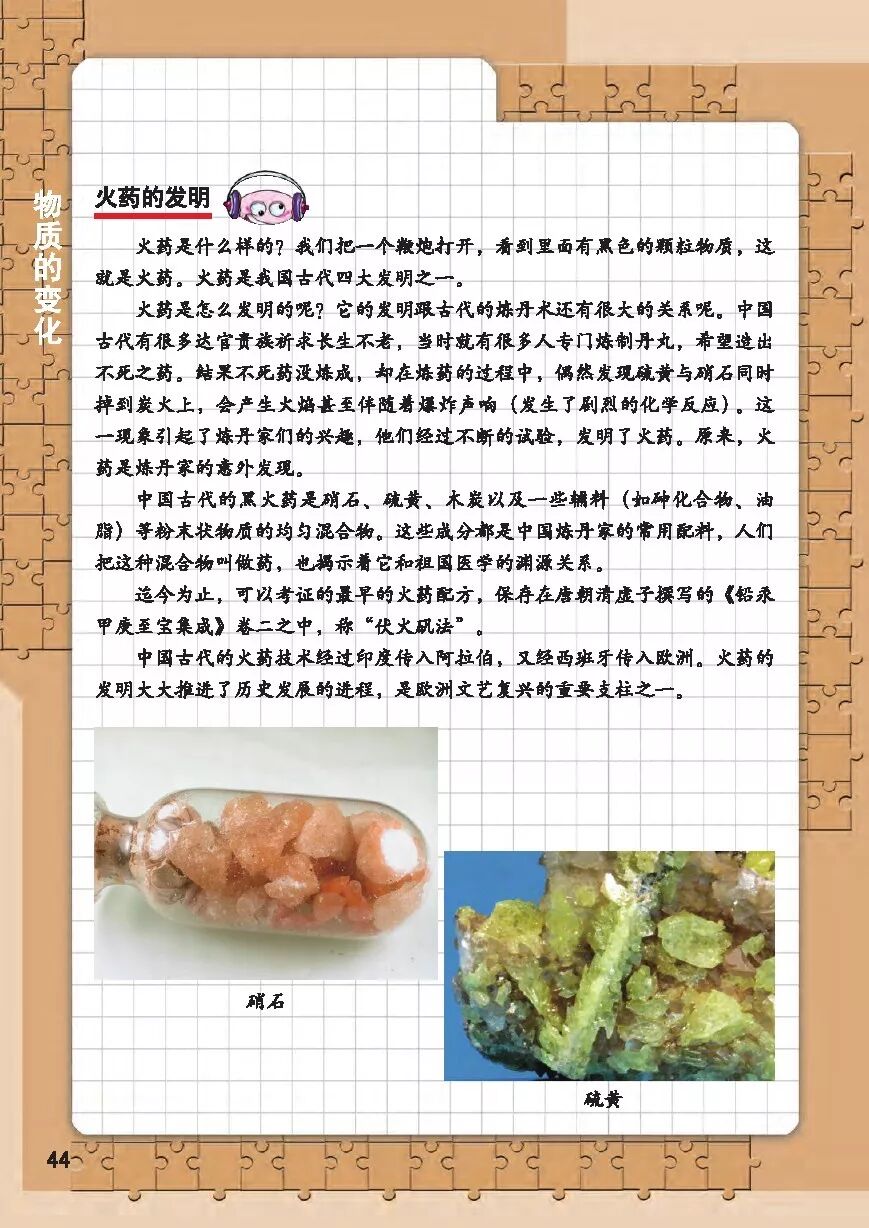 物质的变化
火药的发明
火药是什么样的？我们把一个鞭炮打开，看到里面有黑色的颗粒物质，这
就是火药。火药是我国古代四大发明之一。
火药是怎么发明的呢？它的发明跟古代的炼丹术还有很大的关系呢。中国
古代有很多达官贵族祈求长生不老，当时就有很多人专门炼制丹丸，希望造出
不死之药。结果不死药没炼成，却在炼药的过程中，偶然发现硫黄与硝石同时
掉到炭火上，会产生火焰甚至伴随着爆炸声响（发生了剧烈的化学反应）。这
一现象引起了炼丹家们的兴趣，他们经过不断的试验，发明了火药。原来，火
药是炼丹家的意外发现。
中国古代的黑火药是硝石、硫黄、木炭以及一些辅料（如砷化合物、油
脂）等粉末状物质的均匀混合物。这些成分都是中国炼丹家的常用配料，人们
把这种混合物叫做药，也揭示着它和祖国医学的渊源关系。
迄今为止，可以考证的最早的火药配方，保存在唐朝清虚子撰写的《铅汞
甲庚至宝集成》卷二之中，称“伏火矾法”。
中国古代的火药技术经过印度传入阿拉伯，又经西班牙传入欧洲。火药的
发明大大推进了历史发展的进程，是欧洲文艺复兴的重要支柱之一。
硝石
硫黄
44